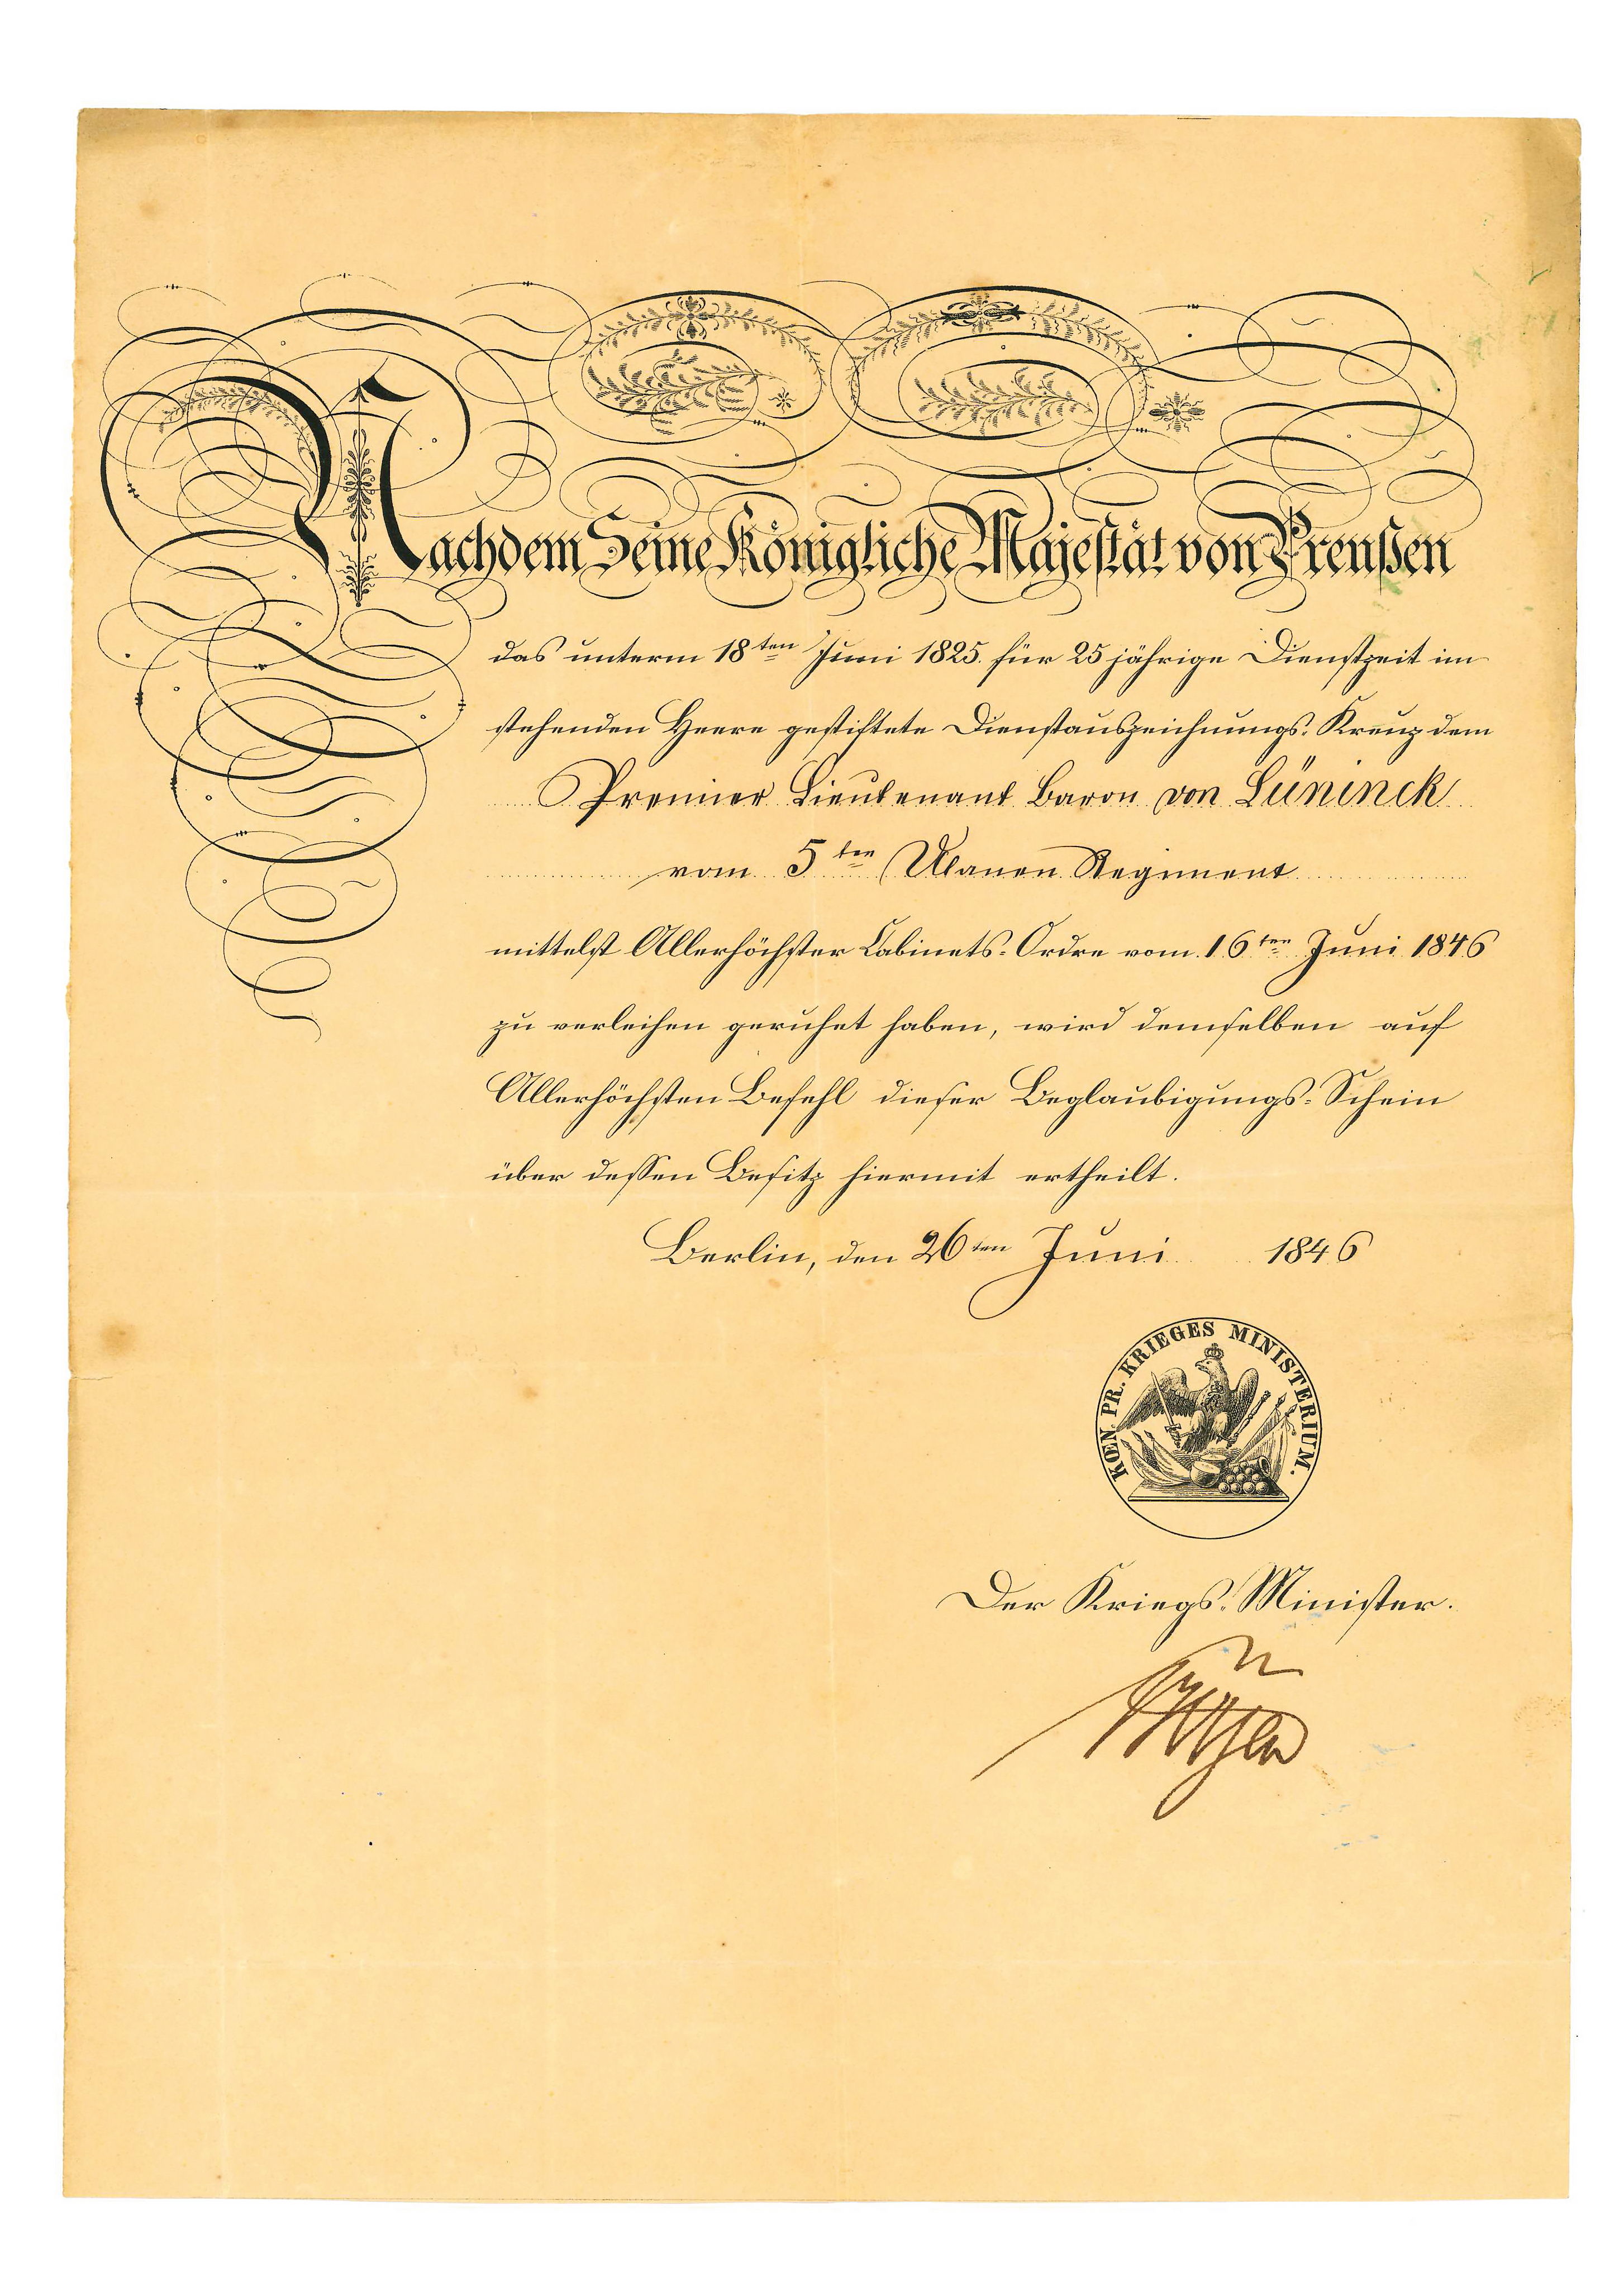 Nachdem Seine Königliche Majestät von Preußen
das unterm 18ten Juni 1825. für 25 jährige Dienstzeit im
stehenden Heere gestiftete Dienstauszeichnungs-Kreuz dem
Premier Lieutenant Baron von Lüninck
vom 5ten Ulanen Regiment
mittelst Allerhöchster Cabinets-Ordre vom 16ten Juni 1846
zu verleihen geruhet haben, wird demselben auf
Allerhöchsten Befehl dieser Beglaubigungs-Schein
über dessen Besitz hiermit ertheilt.
Berlin, den 26ten Juni 1846
KŒN. PR. KRIEGES MINISTERIUM.
Der Kriegs-Minister.